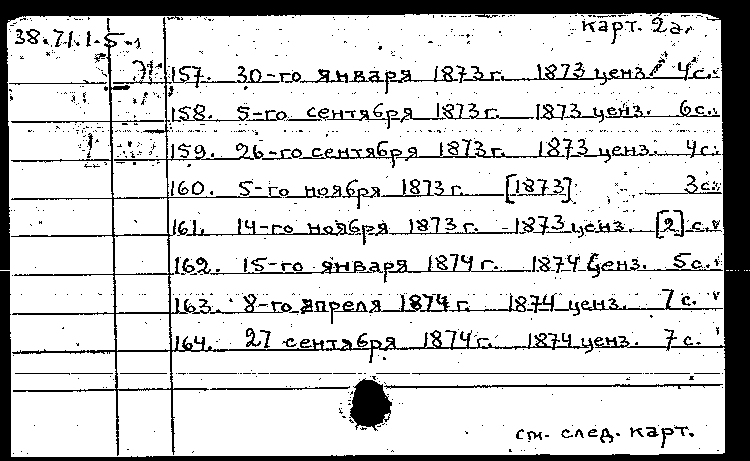 38.71.1.5.1 карт. 2а.
157. 30-го января 1873 г. 1873 ценз. 4 с.
158. 5-го сентября 1873 г. 1873 ценз. 6 с.
159. 26-го сентября 1873 г. 1873 ценз. 4 с.
160. 5-го ноября 1873 г. [1873] 3 с.
161. 14-го ноября 1873 г. 1873 ценз. [2] с.
162. 15-го января 1874 г. 1874 ценз. 5 с.
163. 8-го апреля 1874 г. 1874 ценз. 7 с.
164. 27 сентября 1874 г. 1874 ценз. 7 с.
см. след. карт.